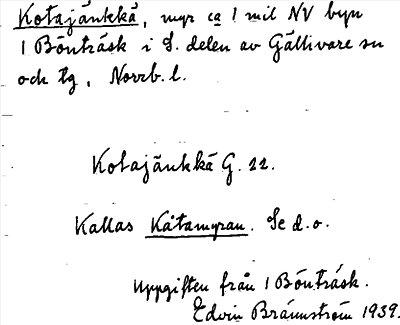 Kotajänkkä, myr ca 1 mil NV byn
1 Bönträsk i S. delen av Gällivare sn
och tg, Norrb. l.
Kotajänkkä G. 22.
Kallas Kåtamyran. Se d.o.
Uppgiften från 1 Bönträsk.
Edvin Brännström 1939.